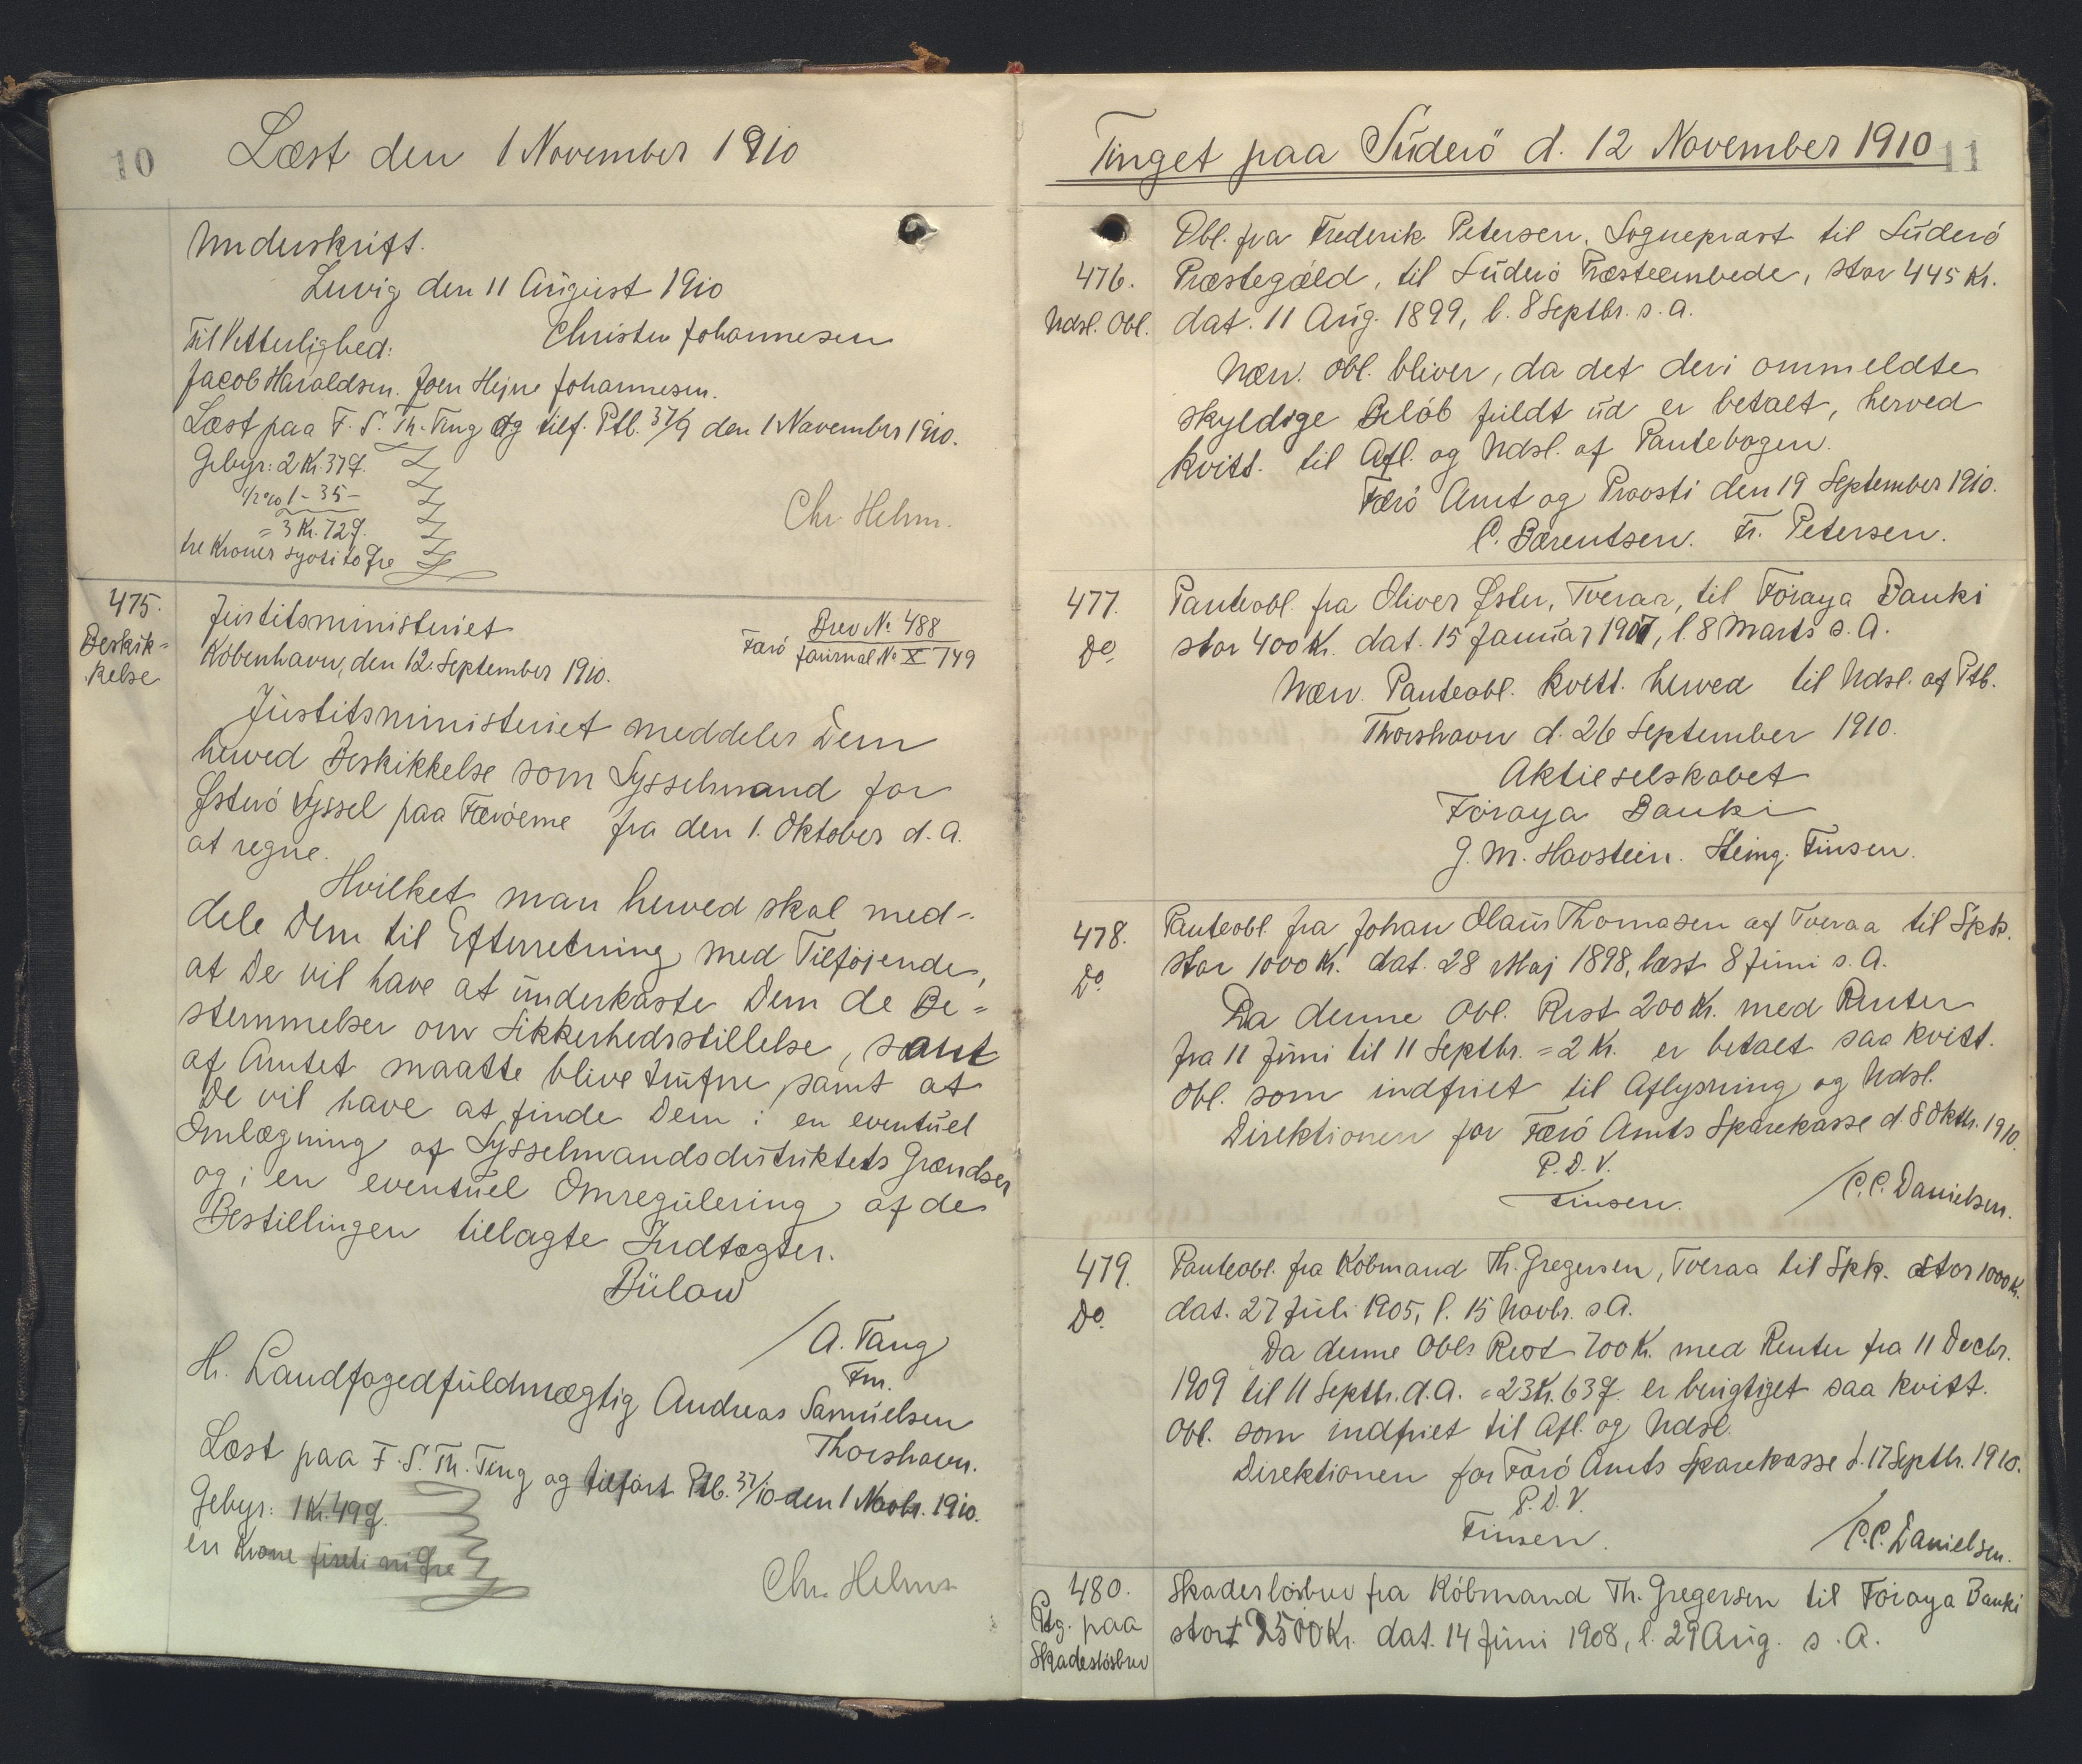 10
Læst den 1 November 1910
Underskrift.
Lervig den 11 August 1910
Til Vitterlighed: Christen Johannesen
Jacob Haraldsen. Joen Hejne Johannesen.
Læst paa F. S. Th. Ting og tilf. Ptb. 37/9 den 1 November 1910.
Gebyr: 2 Kr. 37 Ø.
1/2 % 1 - 35 -
= 3 Kr. 72 Ø.
tre Kroner syoti to Øre
Chr. Helm.
475.
Beskik=
kelse
Justitsministeriet
København, den 12. September 1910.
Brev No 488
Færö Journal No X 749
Justitsministeriet meddeler Dem
herved Beskikkelse som Sysselmand for
Østerö Syssel paa Færöerne fra den 1. Oktober d. A.
at regne.
Hvilket man herved skal med-
dele Dem til Efterretning med Tilföjende,
at De vil have at underkaste Dem de Be=
stemmelser om Sikkerhedsstillelse, som
af Amtet maatte blive trufne, samt at
De vil have at finde Dem i en eventuel
Omlægning af Sysselmandsdistriktets Grændser
og i en eventuel Omregulering af de
Bestillingen tillagte Indtægter.
Bülow
/ A. Tang
Fm.
Hr. Landfogedfuldmægtig Andreas Samuelsen
Thorshavn.
Læst paa F. S. Th. Ting og tilført Ptb. 37/10 den 1 Novbr. 1910.
Gebyr: 1 Kr. 49 Ø.
en Krone fireti ni Øre
Chr. Helms
Tinget paa Süderö d. 12 November 1910
11
476.
Udsl. Obl.
Obl. fra Frederik Petersen, Sognepræst til Süderö
Præstegæld, til Süderö Præsteembede, stor 445 Kr.
dat. 11 Aug. 1899, l. 8 Septbr. s. A.
Nærv. Obl. bliver, da det deri ommeldte
skyldige Belöb fuldt ud er betalt, herved
kvitt. til Afl. og Udsl. af Pantebogen.
Færö Amt og Provsti den 19 September 1910.
C. Bærentsen. Fr. Petersen.
477.
Do
Panteobl. fra Oliver Øster, Tveraa, til Föroya Banki
stor 400 Kr. dat. 15 Januar 1907, l. 8 Marts s. A.
Nærv. Panteobl. kvitt. herved til Udsl. af Ptb.
Thorshavn d. 26 September 1910.
Aktieselskabet
Föroya Banki
J. M. Havstein. Heing. Finsen.
478.
Do
Panteobl. fra Johan Olaus Thomasen af Tveraa til Spk.
stor 1000 Kr. dat. 28 Maj 1898, læst 8 Juni s. A.
Da denne Obl. Rest 200 Kr. med Renter
fra 11 Juni til 11 Septbr. = 2 Kr. er betalt saa kvitt.
Obl. som indfriet til Aflysning og Udsl.
Direktionen for Færö Amts Sparekasse d. 8 Oktbr. 1910.
P. D. V.
Finsen. / C. C. Danielsen.
479.
Do
Panteobl. fra Köbmand Th. Gregersen, Tveraa til Spk. stor 1000 Kr.
dat. 27 Juli 1905, l. 15 Novbr. s A.
Da denne Obls Rest 700 K. med Renter fra 11 Decbr.
1909 til 11 Septbr. d. A. = 23 Kr. 63 Ø. er berigtiget saa kvitt.
Obl. som indfriet til Afl. og Udsl.
Direktionen for Færö Amts Sparekasse d. 17 Septbr. 1910.
P. D. V.
Finsen. / C. C. Danielsen.
480.
Ptg. paa
Skadeslösbrev
Skadeslösbrev fra Köbmand Th. Gregersen til Föroya Banki
stort 2500 Kr. dat. 14 Juni 1908, l. 29 Aug. s. A.